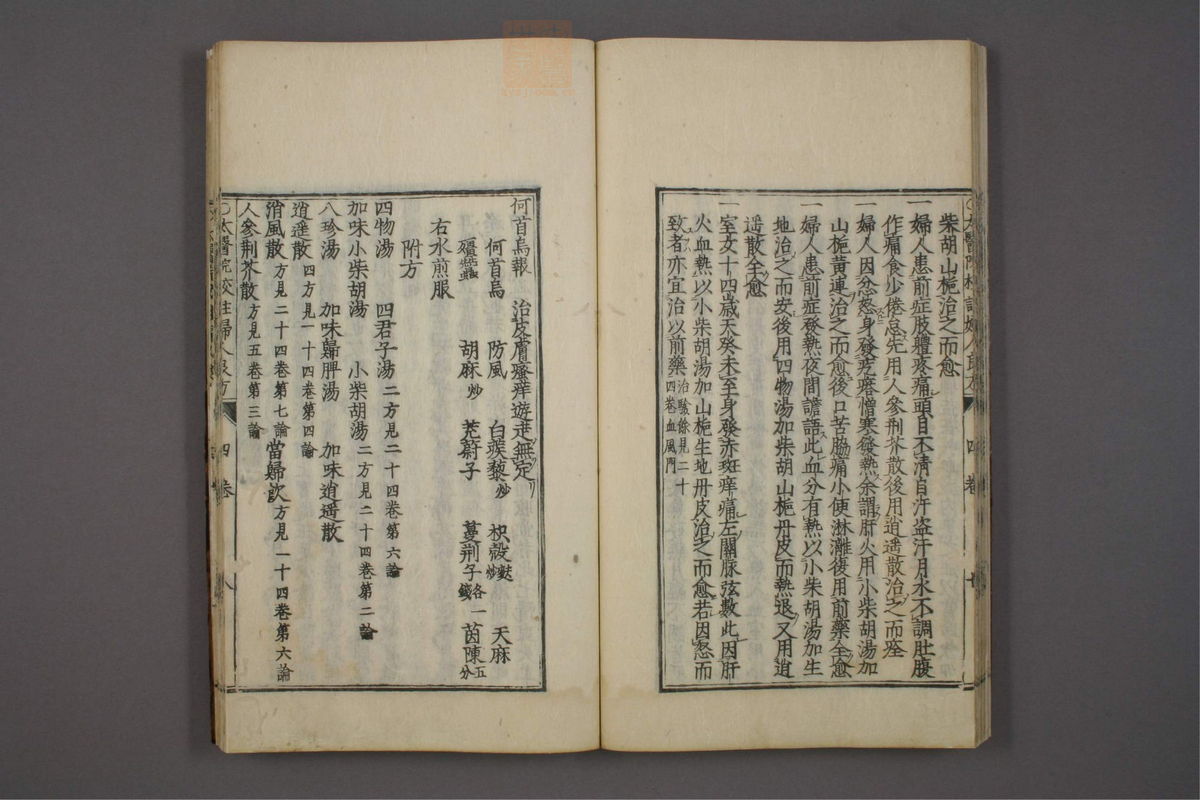 柴胡山梔治之而愈
一婦人患前症肢體疼痛頭目不清自汗盗汗月水不調肚腹
作痛食少倦怠先用人參荆芥散後用逍遥散治之而痊
一婦人因忿怒身發疙瘩憎寒發熱余謂肝火用小柴胡湯加
山梔黄連治之而愈後口苦脇痛小便淋瀝復用前藥全愈
一婦人患前症發熱夜間譫語此血分有熱以小柴胡湯加生
地治之而安後用四物湯加柴胡山梔丹皮而熱退又用逍
遥散全愈
一室女十四歳天癸未至身發赤斑痒痛左關脉弦數此因肝
火血熱以小柴胡湯加山梔生地丹皮治之而愈若因怒而
致者亦宜治以前藥治驗餘見二十四卷血風門
何首烏報 治皮膚瘙痒遊走無定
何首烏 防風 白蒺藜炒 枳殼麩炒 天麻
殭蠶 胡麻炒 茺蔚子 蔓荆子各一錢 茵陳五分
右水煎服
附方
四物湯 四君子湯二方見二十四卷第六論
加味小柴胡湯 小柴胡湯二方見二十四卷第二論
八珍湯 加味歸脾湯 加味逍遥散
逍遥散四方見一十四卷第四論
消風散方見二十四卷第七論 當歸飲方見一十四卷第六論
人參荆芥散方見五卷第三論
〇太醫院校註婦人良方 四卷 八